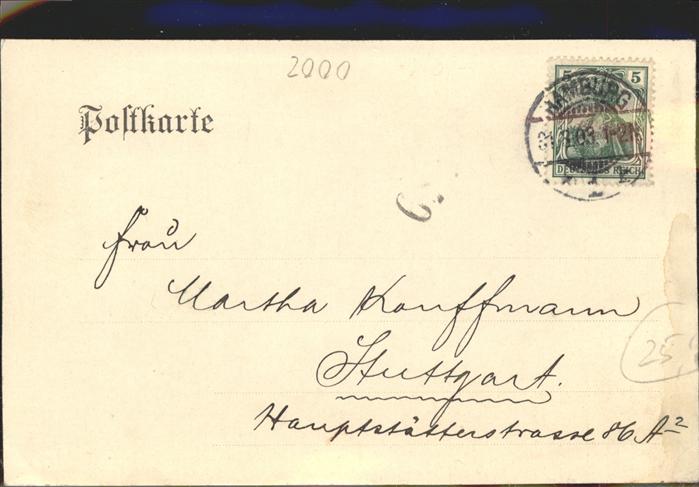 2000
Postkarte
5 5
HAMBURG
03. 1-2N
DEUTSCHES REICH
1
Frau
Martha Kauffmann
Stuttgart.
Hauptstätterstrasse 86 A²
25